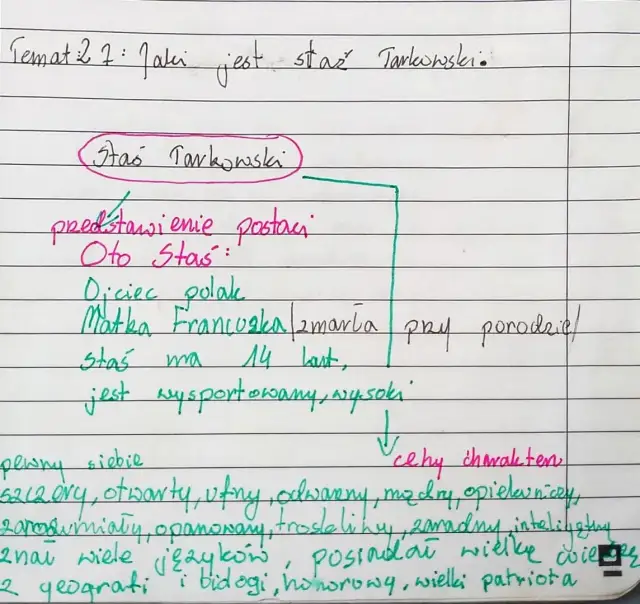 Temat 27: Jaki jest staś Tarkowski.
Staś Tarkowski
przedstawienie postaci
Oto Staś:
Ojciec polak
Matka Francuzka /zmarła przy porodzie/
staś ma 14 lat,
jest wysportowany, wysoki
pewny siebie
cehy charakteru
szczery, otwarty, ufny, odważny, mądry, opiekuńczy,
zarozumiały, opanowany, troskliwy, zaradny, inteligętny
znał wiele języków, posiadał wielkę
z geografi i bidogi, honorowy, wielki patriota